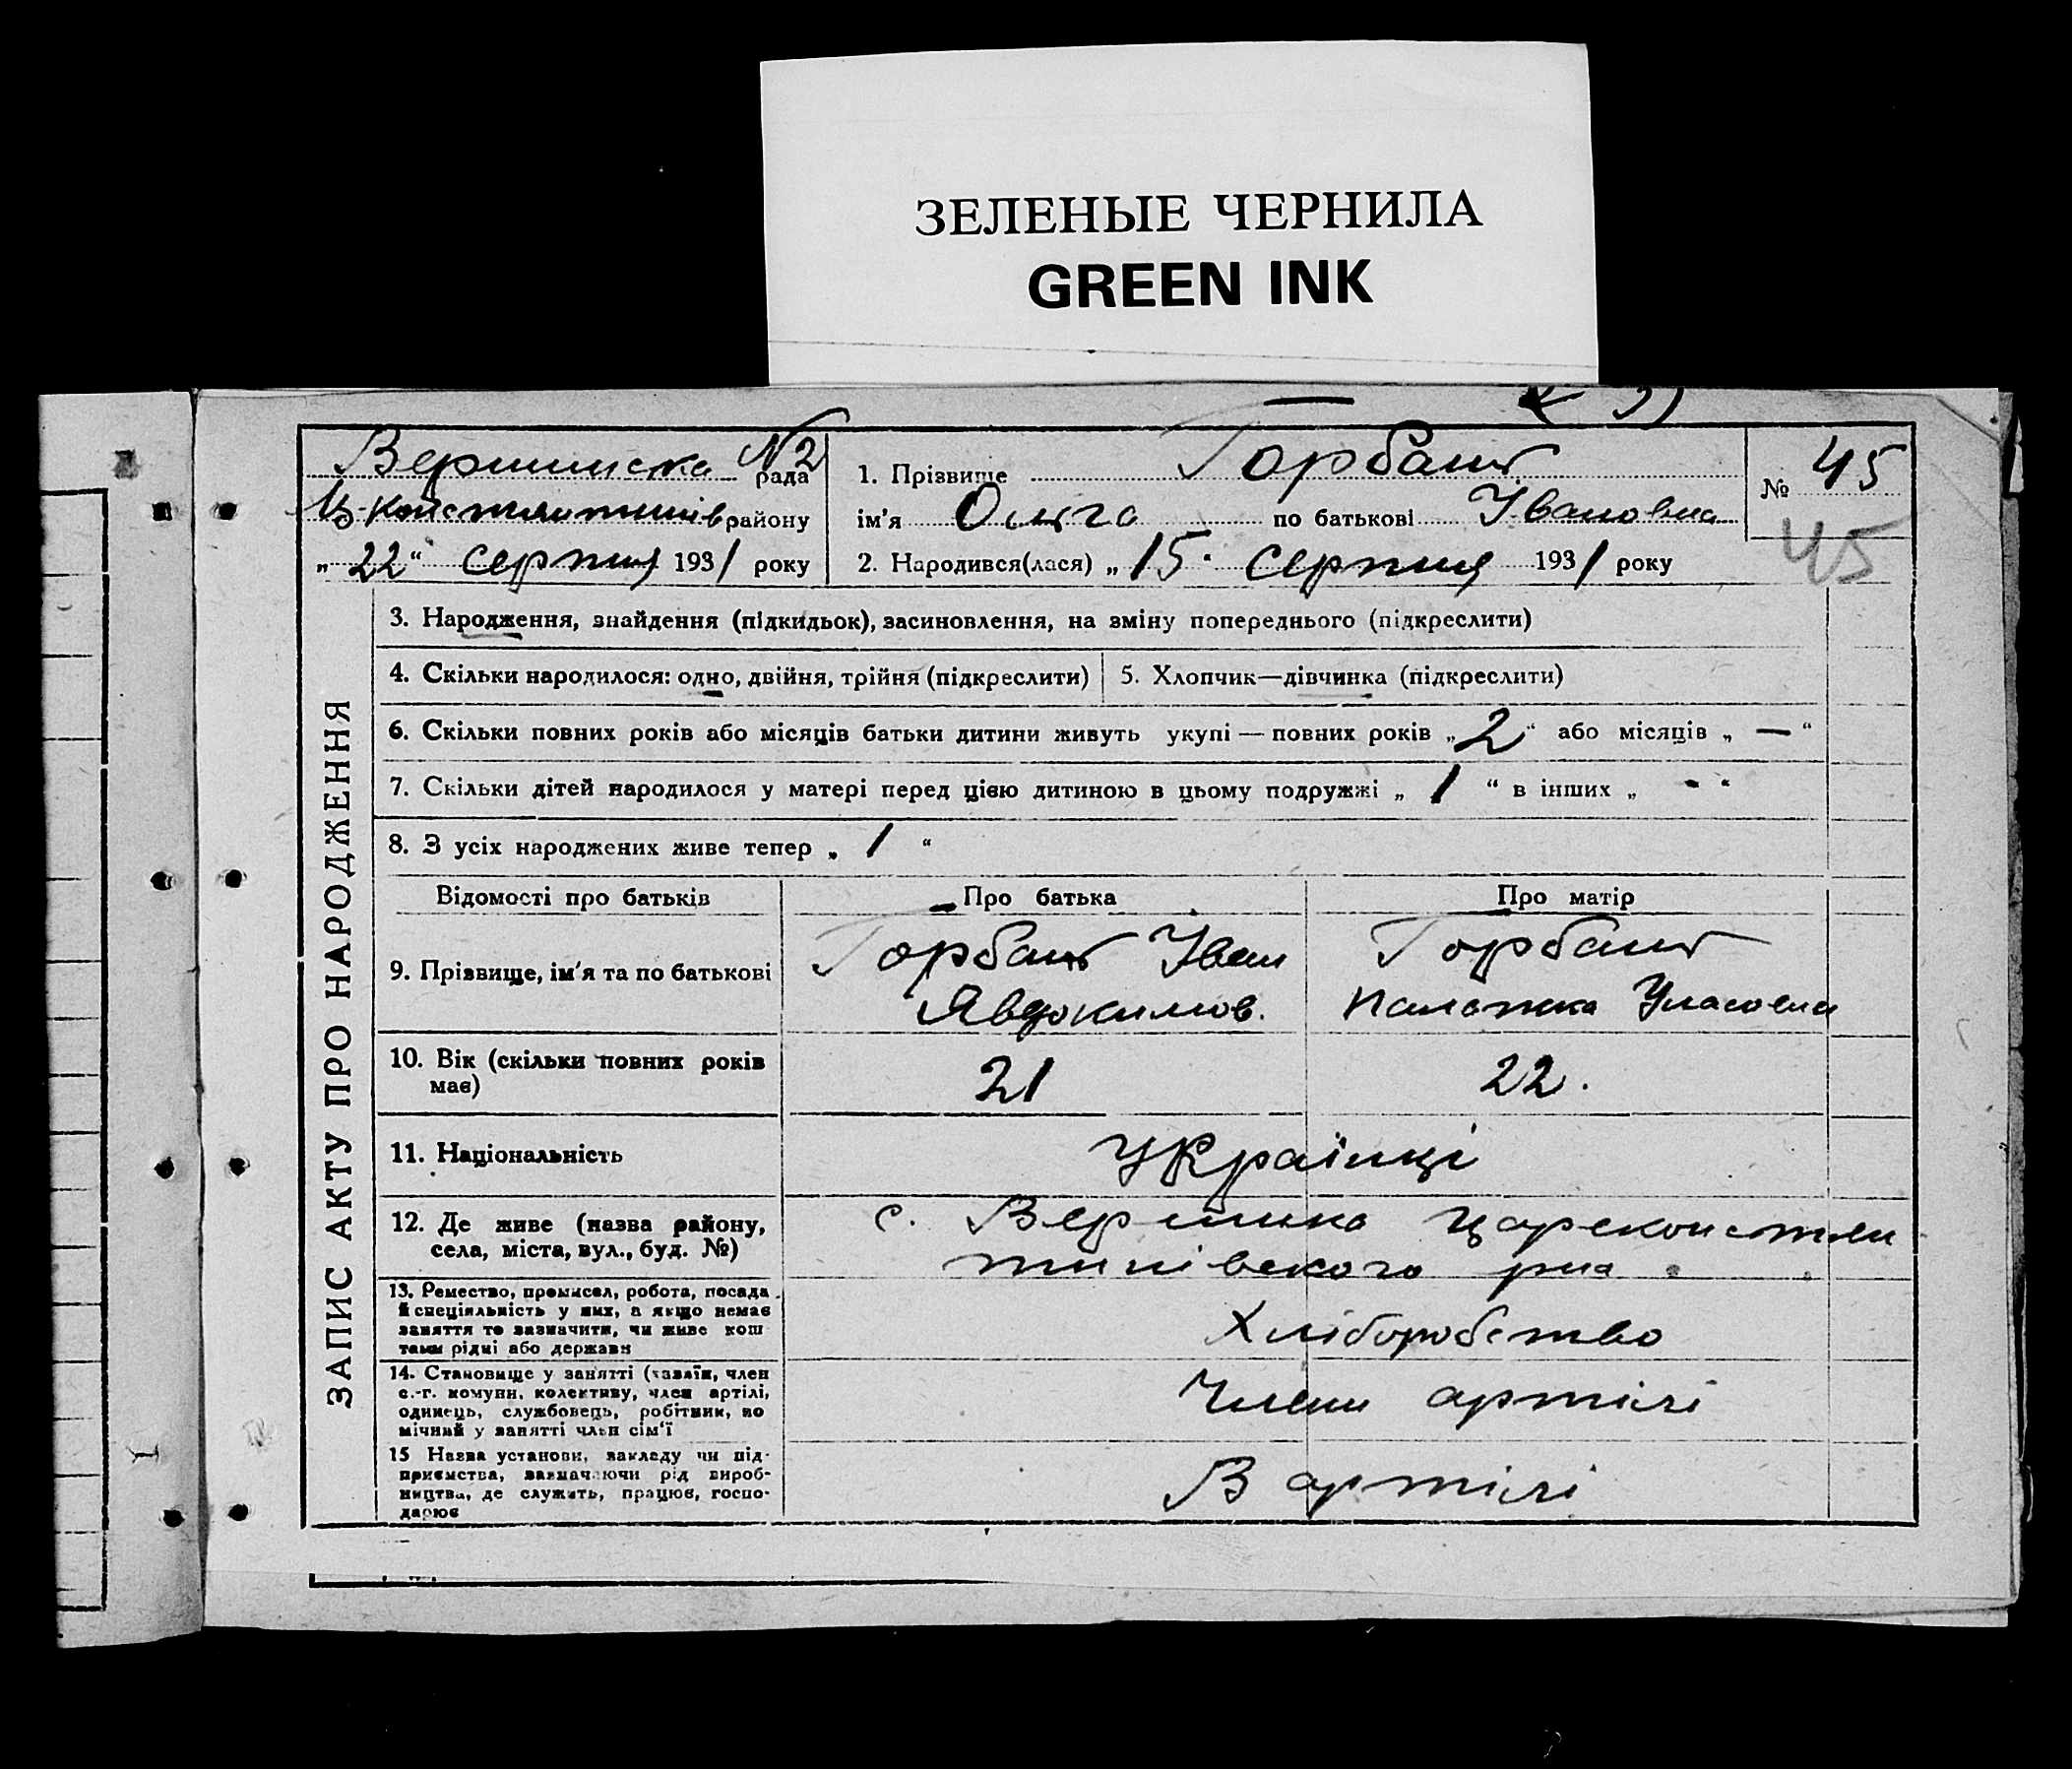 ЗЕЛЕНЫЕ ЧЕРНИЛА
GREEN INK
Вершинська №2 рада
Ц-Констянтинів району
„22“ серпня 1931 року
1. Прізвище Горбань
ім'я Ольга по батькові Івановна
2. Народився(лася) „15 серпня 1931 року
№ 45
45
ЗАПИС АКТУ ПРО НАРОДЖЕННЯ
3. Народження, знайдення (підкидьок), засиновлення, на зміну попереднього (підкреслити)
4. Скільки народилося: одно, двійня, трійня (підкреслити)
5. Хлопчик—дівчинка (підкреслити)
6. Скільки повних років або місяців батьки дитини живуть укупі — повних років „2“ або місяців „—“
7. Скільки дітей народилося у матері перед цією дитиною в цьому подружжі „1“ в інших „-“
8. З усіх народжених живе тепер „1“
Відомості про батьків
Про батька
Про матір
9. Прізвище, ім'я та по батькові
Горбань Іван
Явдокимов.
Горбань
Палажка Уласовна
10. Вік (скільки повних років
має)
21
22.
11. Національність
Українці
12. Де живе (назва району,
села, міста, вул., буд. №)
с. Вершина Цареконстян
тинівского р-на
13. Ремество, промисел, робота, посада
й спеціяльність у них, а якщо немає
заняття то зазначити, чи живе кош
тами рідні або держави
Хліборобство
14. Становище у занятті (хазяїн, член
с.-г. комуни, колективу, член артілі,
одинець, службовець, робітник, по
мічний у занятті член сім'ї
Члени артілі
15 Назва установи, закладу чи під-
приємства, зазначаючи рід вироб-
ництва, де служить, працює, госпо-
дарює
В артілі